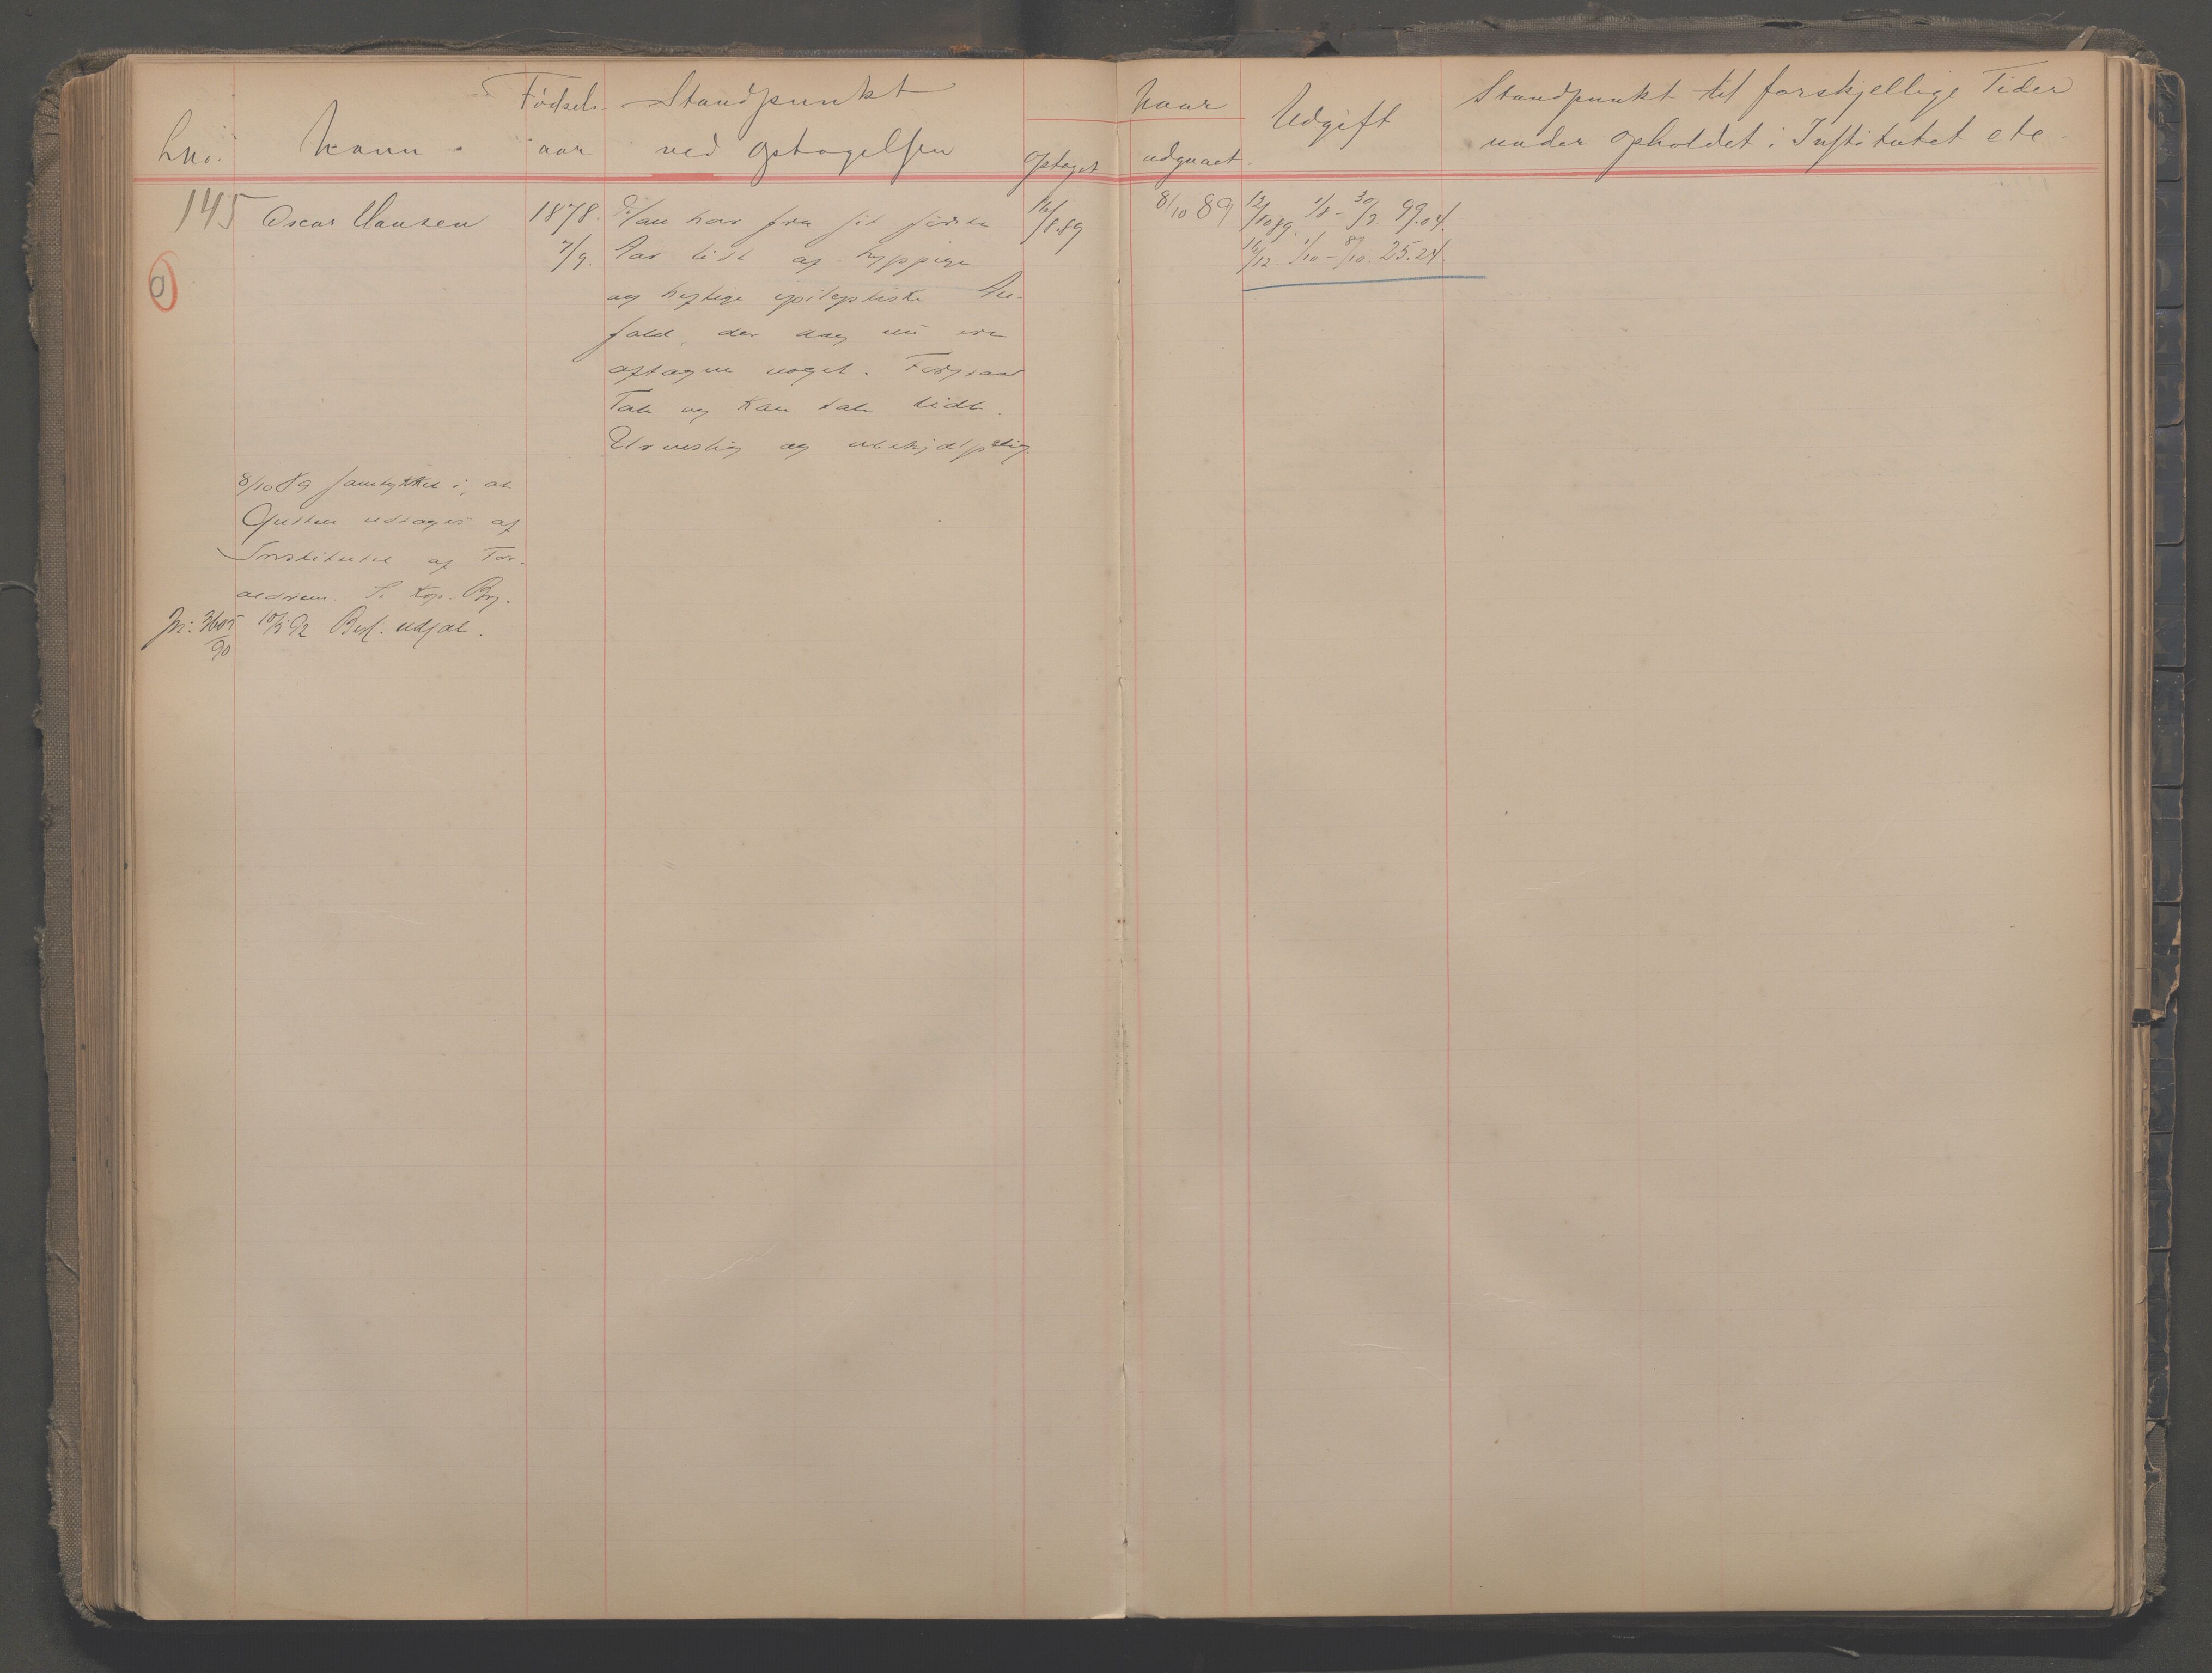 Lno.
Navn.
Fødsels-
aar
Standpunkt
ved Optagelsen
Optaget
Naar
udgaaet.
Udgift
Standpunkt til forskjellige Tider
under Opholdet i Institutet etc.
145
Oscar Hansen
1878.
7/9.
Han har fra sit første
Aar lidt af hyppige
og heftige epileptiske An-
fald, der dog nu ere
aftagne noget. Forstaar
Tale og kan tale lidt.
Urenslig og ubehjælpelig.
16/8.89
8/10 89
12/10 89. 1/8 - 30/9. 99.04.
16/12. 1/10 - 8/10. 25.24.
0
8/10 89 samtykket i, at
Gutten udtages af
Institutet af For-
ældrene. S. Kop. Bog.
Jr: 3605/90
10/5 92 Besk. udfær.